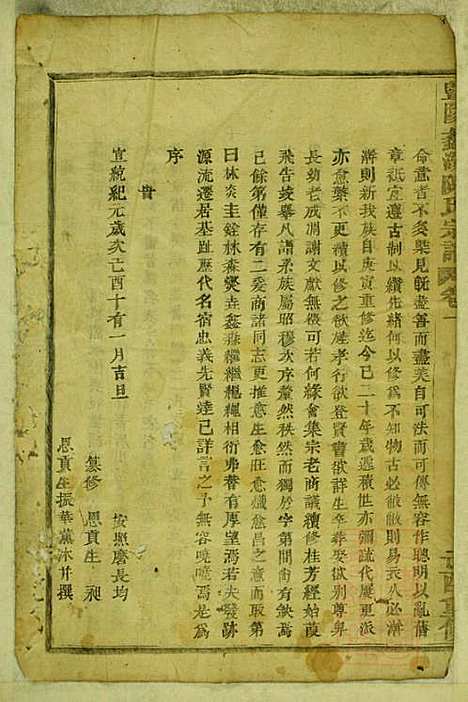 豐國鑫湖陳氏宗譜 卷一
命當者不多槩見旣盡善而盡美自可法而可傳無容作聰明以亂舊
章祇宜遵古制以纘先緒何以修爲不知物古必敝敝則易衣八必漸
漸則新我族自庚寅重修迄今已二十年歲遞積世亦彌疏代屢更派
亦愈蘩不更積以修之欲其孝行欲登賢書欲詳生卒葬娶欲別尊卑
長幼老成凋謝文獻無徵可若何緣會集宗老商議續修桂芳經始葭
飛告竣舉凡譜系族屬昭穆次序釐然秩然而獨於字第間尚有缺焉
已餘第僅存有二爰商諸同志更推意生愈旺愈熾愈昌之意而取第
曰林炎圭銓林森燮垚鑫淼繼繼繩繩相衍弗替有厚望焉若夫發跡
源流遷居基趾歷代名宿忠義先賢達已詳言之予無容曉曉焉是爲
序
宣統紀元歲次己酉十有一月吉旦
按照磨長均
纂修 恩貢生 昶
恩貢生振華薰沐甘撰
己酉重修